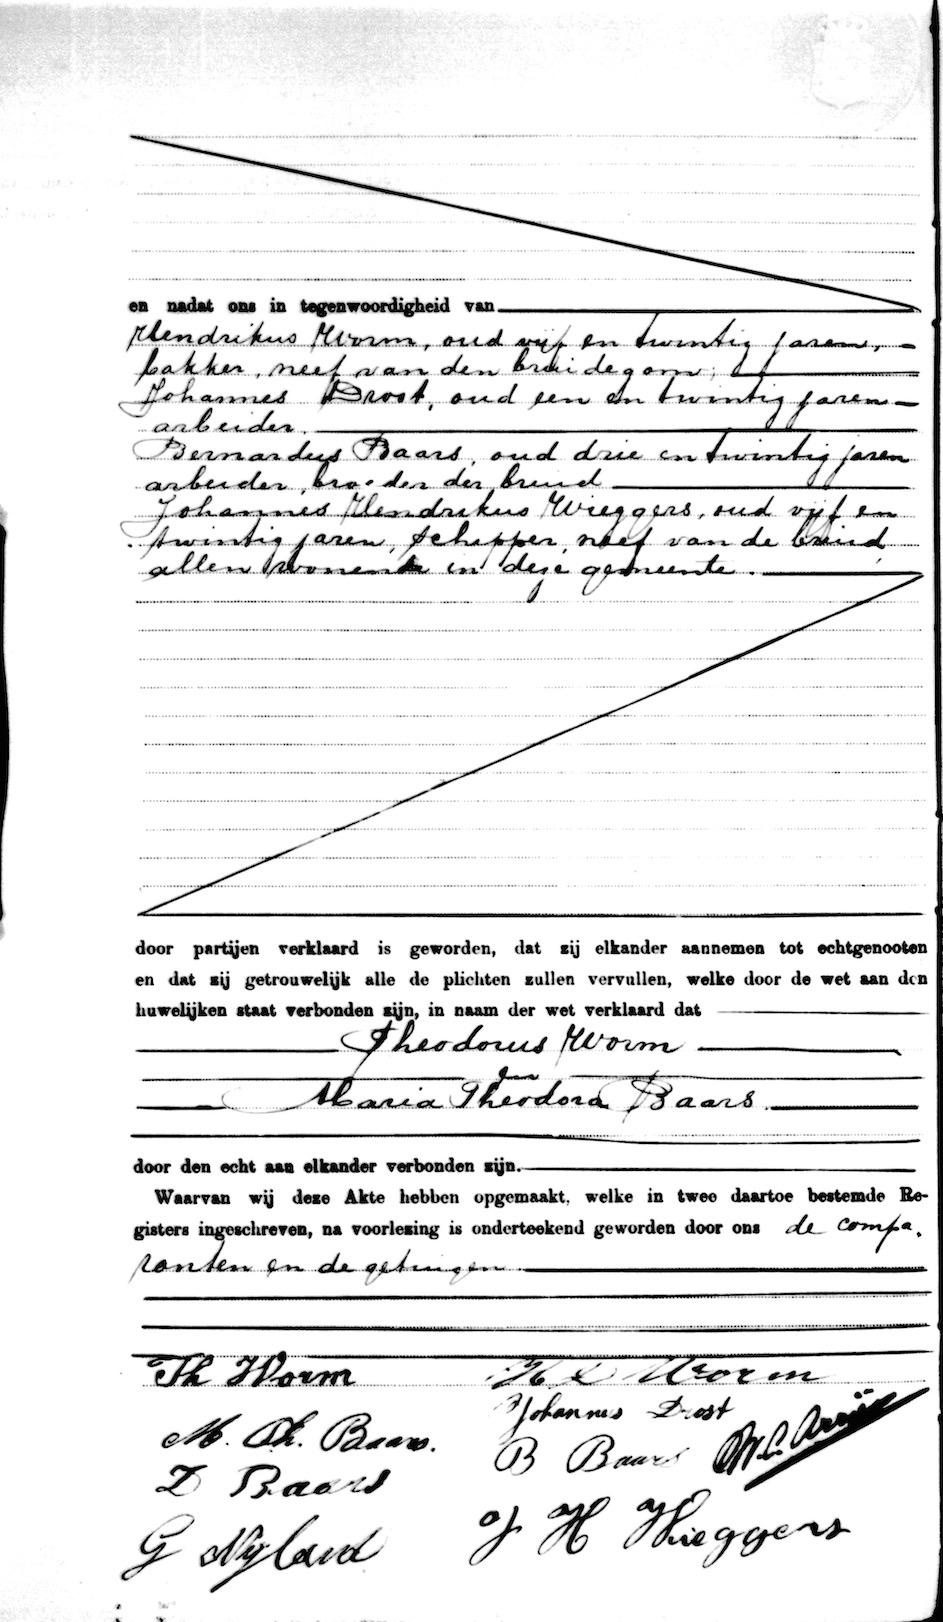 en nadat ons in tegenwoordigheid van
Hendrikus Worm, oud vijf en twintig jaren,
bakker, neef van den bruidegom;
Johannes Drost, oud een en twintig jaren
arbeider.
Bernardus Baars, oud drie en twintig jaren
arbeider, broeder der bruid
Johannes Hendrikus Wieggers, oud vijf en
twintig jaren, schipper, neef van de bruid,
allen wonende in deze gemeente.
door partijen verklaard is geworden, dat zij elkander aannemen tot echtgenooten
en dat zij getrouwelijk alle de plichten zullen vervullen, welke door de wet aan den
huwelijken staat verbonden zijn, in naam der wet verklaard dat
Theodorus Worm
en
Maria Theodora Baars.
door den echt aan elkander verbonden zijn.
Waarvan wij deze Akte hebben opgemaakt, welke in twee daartoe bestemde Re-
gisters ingeschreven, na voorlezing is onderteekend geworden door ons de compa.
ranten en de getuigen.
Th Worm
M. Th. Baars.
D Baars
G Nijland
H Worm
Johannes Drost
B Baars
J H Wieggers